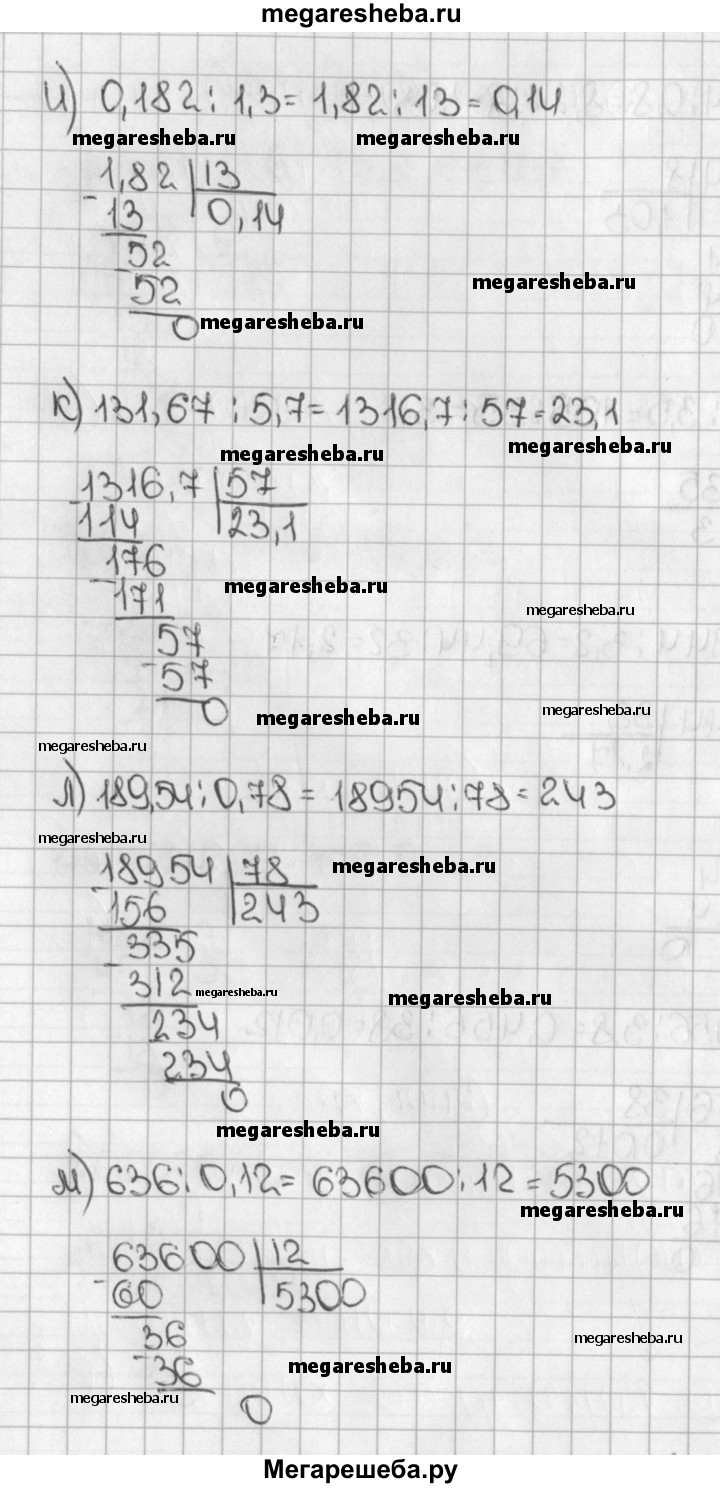 megaresheba.ru
и) 0,182 : 1,3 = 1,82 : 13 = 0,14
megaresheba.ru megaresheba.ru
1,82 | 13
- 13 0,14
- 52
52 megaresheba.ru
0 megaresheba.ru
к) 131,67 : 5,7 = 1316,7 : 57 = 23,1
megaresheba.ru megaresheba.ru
1316,7 | 57
- 114 23,1
- 176 megaresheba.ru
171 megaresheba.ru
- 57
57
0 megaresheba.ru megaresheba.ru
megaresheba.ru
л) 189,54 : 0,78 = 18954 : 78 = 243
megaresheba.ru megaresheba.ru
18954 | 78
- 156 243
- 335
312 megaresheba.ru megaresheba.ru
234
234
0
megaresheba.ru
м) 636 : 0,12 = 63600 : 12 = 5300
megaresheba.ru
63600 | 12
- 60 5300
- 36 megaresheba.ru
36 megaresheba.ru
megaresheba.ru
0
Мегарешеба.ру